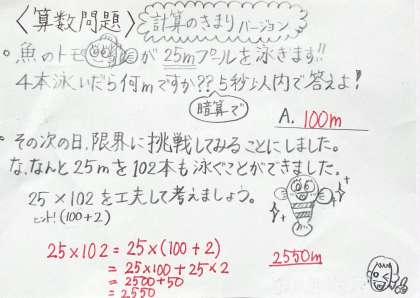 〈算数問題〉 計算のきまりバージョン
○魚のトモ が25mプールを泳ぎます!!
4本泳いだら何mですか??5秒以内で答えよ!
暗算で
A. 100m
○その次の日、限界に挑戦してみることにしました。
な、なんと25mを102本も泳ぐことができました。
25×102を工夫して考えましょう。
ヒント!(100+2)
25×102=25×(100+2)
=25×100+25×2
=2500+50
=2550
2550m